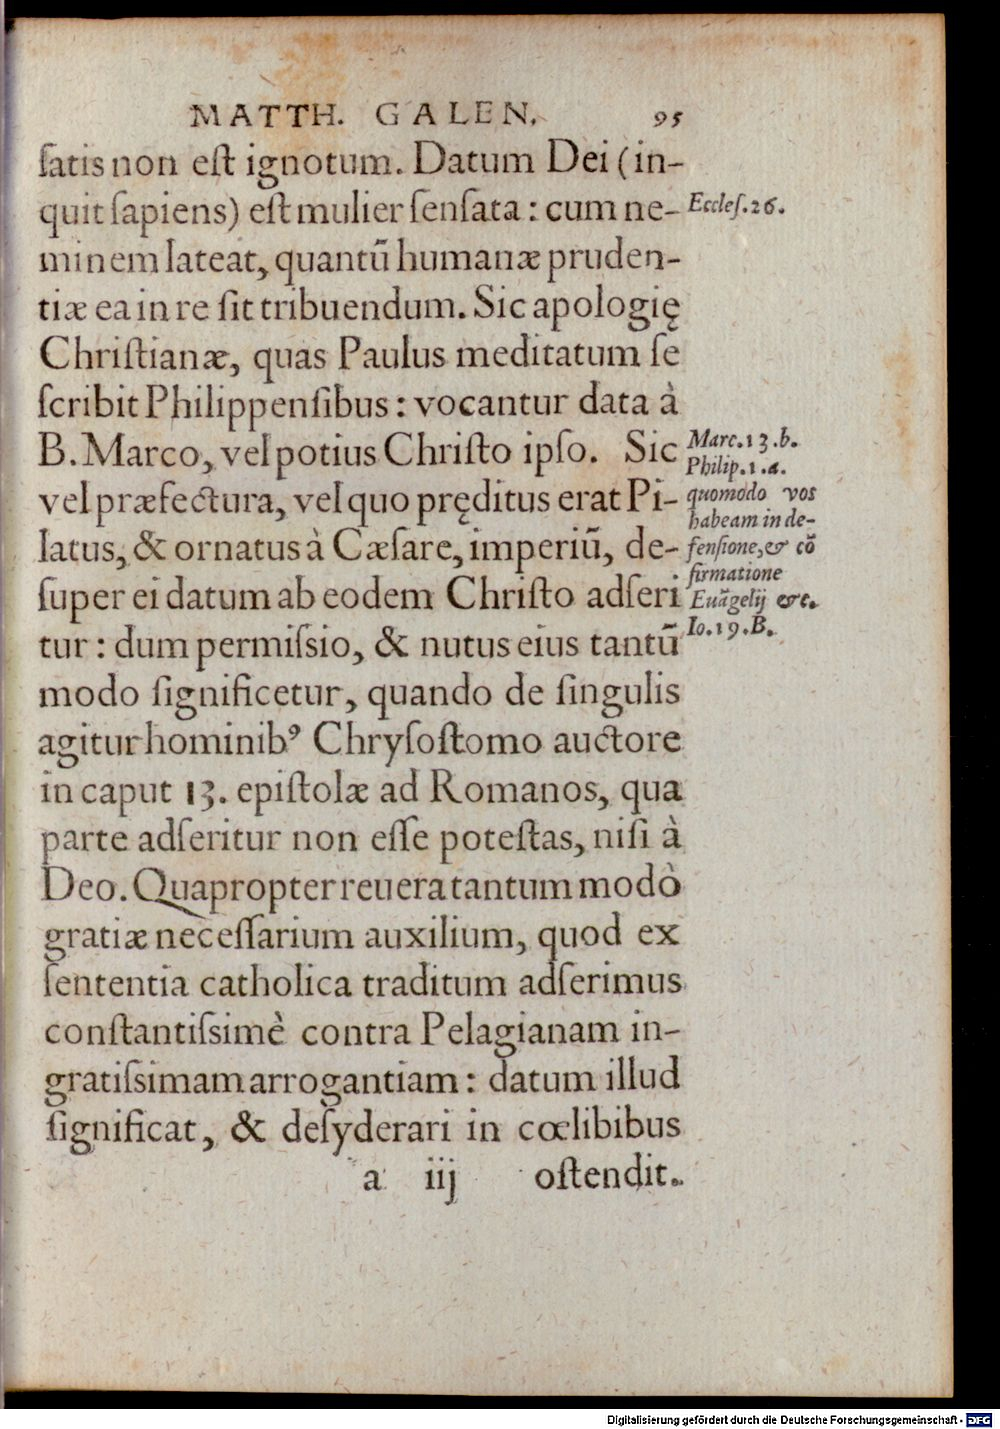 MATTH. GALEN. 95
ſatis non eſt ignotum. Datum Dei (in-
quit ſapiens) eſt mulier ſenſata : cum ne-
minem lateat, quantũ humanæ pruden-
tiæ ea in re ſit tribuendum. Sic apologię
Chriſtianæ, quas Paulus meditatum ſe
ſcribit Philippenſibus : vocantur data à
B. Marco, vel potius Chriſto ipſo. Sic
vel præfectura, vel quo pręditus erat Pi-
latus, & ornatus à Cæſare, imperiũ, de-
ſuper ei datum ab eodem Chriſto adſeri
tur : dum permiſsio, & nutus eius tantũ
modo ſignificetur, quando de ſingulis
agitur hominibꝰ Chryſoſtomo auctore
in caput 13. epiſtolæ ad Romanos, qua
parte adſeritur non eſſe poteſtas, niſi à
Deo. Quapropter reuera tantum modò
gratiæ neceſſarium auxilium, quod ex
ſententia catholica traditum adſerimus
conſtantiſsimè contra Pelagianam in-
gratiſsimam arrogantiam : datum illud
ſignificat, & deſyderari in cœlibibus
a iij oſtendit.
Eccleſ.26.
Marc.13.b.
Philip.1.a.
quomodo vos
habeam in de-
fenſione, & cõ
firmatione
Euãgelij &c.
Io.19.B.
Digitalisierung gefördert durch die Deutsche Forschungsgemeinschaft - DFG